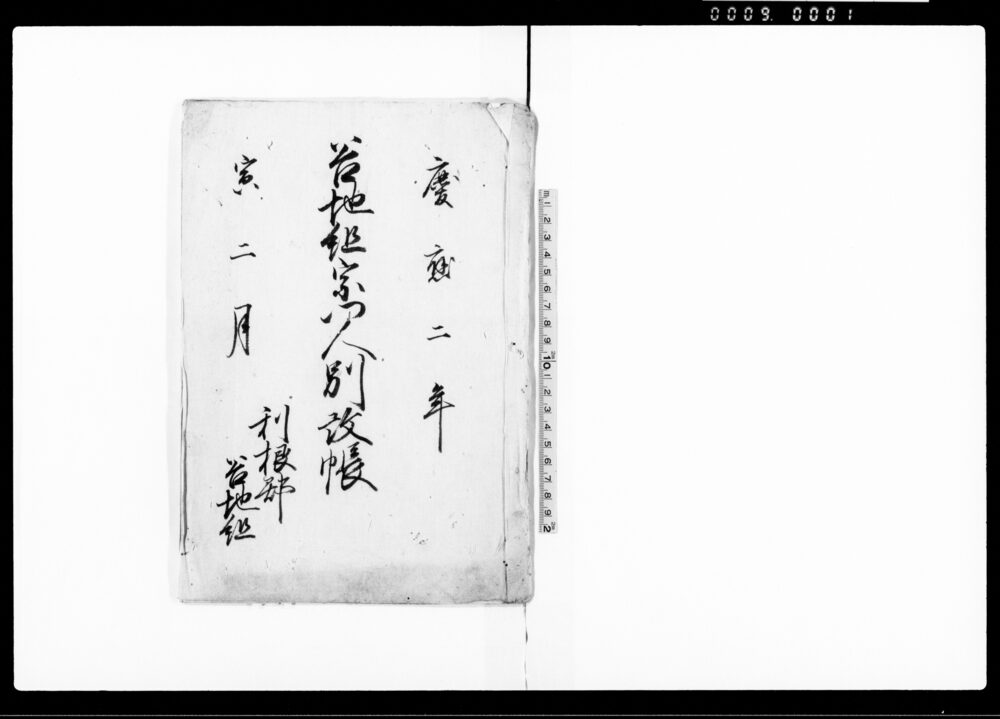 0009.0001
慶應二年
谷地組宗門人別改帳
寅二月
利根郡
谷地組
m 1 2 3 4 5 6 7 8 9 10 1 2 3 4 5 6 7 8 9 2